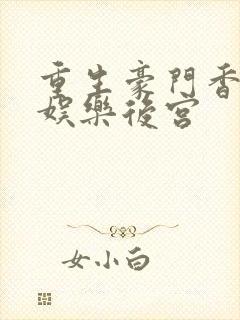 重生豪門香
娛樂後宮
女小白